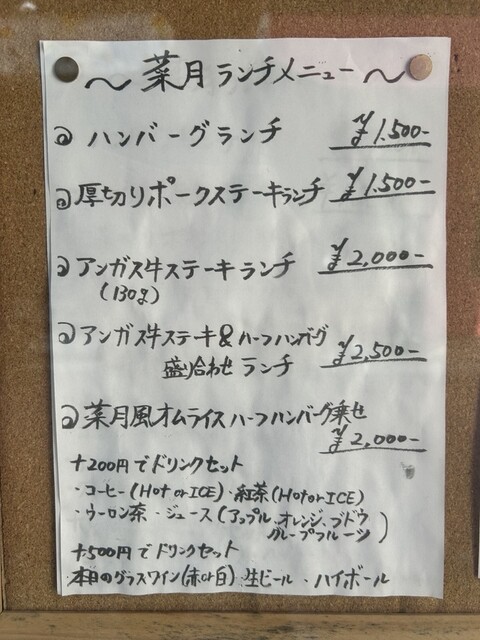 ～菜月ランチメニュー～
ハンバーグランチ ¥1.500-
厚切りポークステーキランチ ¥1.500-
アンガス牛ステーキランチ ¥2,000-
(130g)
アンガス牛ステーキ&ハーフハンバーグ
盛り合わせ ランチ ¥2,500-
菜月風オムライスハーフハンバーグ乗せ
¥2,000-
+200円でドリンクセット
・コーヒー(Hot or ICE)・紅茶(Hot or ICE)
・ウーロン茶・ジュース(アップル、オレンジ、ブドウ
グレープフルーツ)
+500円でドリンクセット
本日のグラスワイン(赤or白)・生ビール・ハイボール